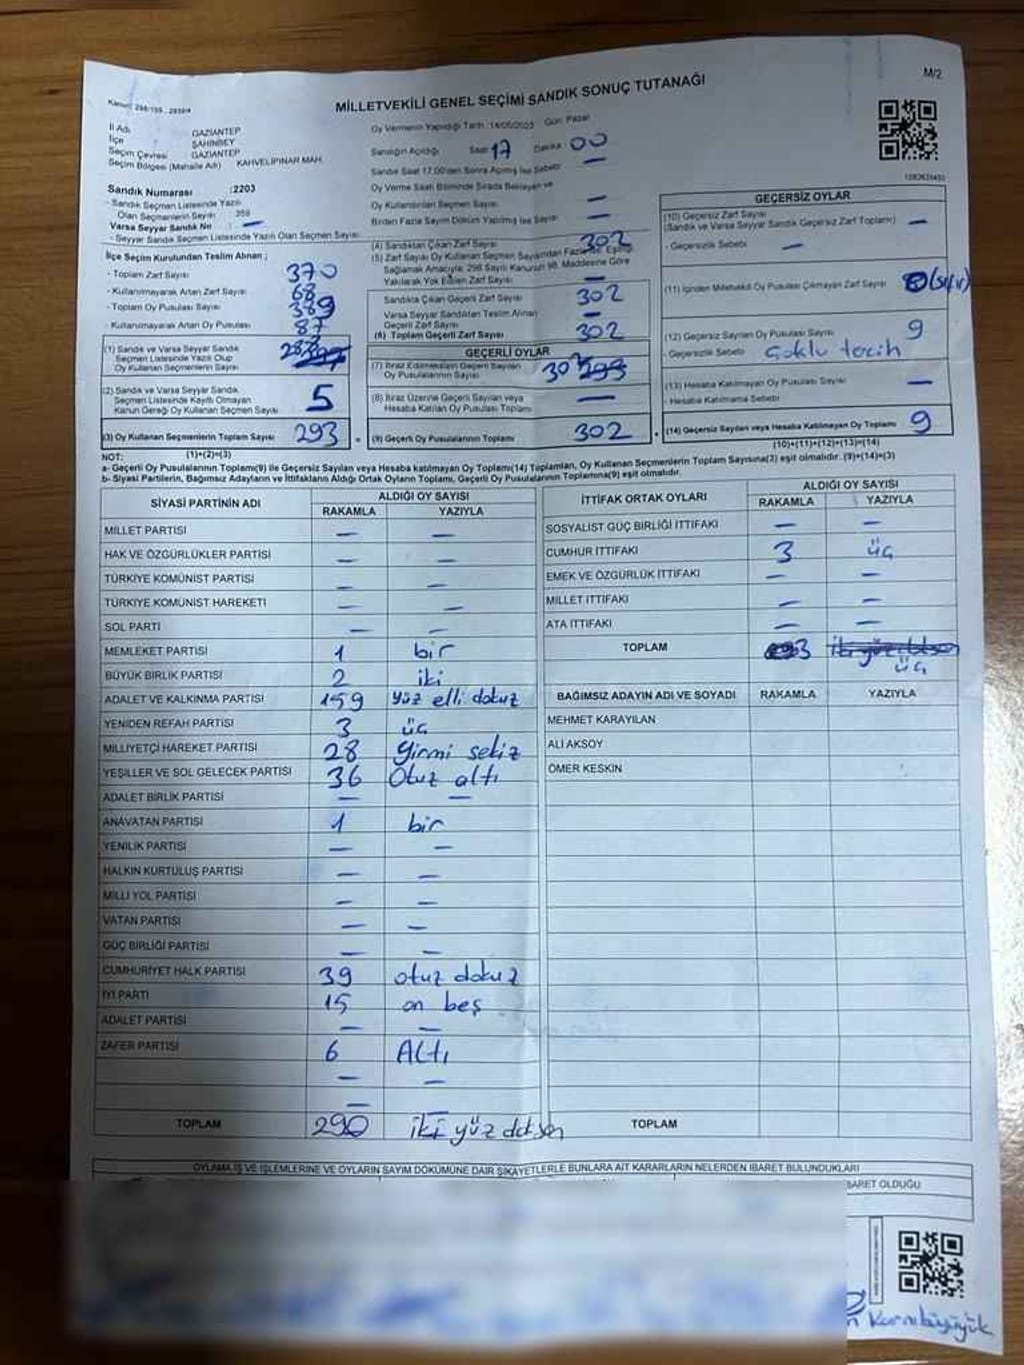 Kanun: 298/105 , 2839/4
MİLLETVEKİLİ GENEL SEÇİMİ SANDIK SONUÇ TUTANAĞI
M/2
İl Adı GAZİANTEP
İlçe ŞAHİNBEY
Seçim Çevresi GAZİANTEP
Seçim Bölgesi (Mahalle Adı) KAHVELİPINAR MAH.
Sandık Numarası :2203
- Sandık Seçmen Listesinde Yazılı
Olan Seçmenlerin Sayısı : 359
Varsa Seyyar Sandık No : —
- Seyyar Sandık Seçmen Listesinde Yazılı Olan Seçmen Sayısı:
İlçe Seçim Kurulundan Teslim Alınan ;
- Toplam Zarf Sayısı 370
- Kullanılmayarak Artan Zarf Sayısı 68
- Toplam Oy Pusulası Sayısı 389
- Kullanılmayarak Artan Oy Pusulası 87
(1) Sandık ve Varsa Seyyar Sandık
Seçmen Listesinde Yazılı Olup
Oy Kullanan Seçmenlerin Sayısı 288
(2) Sandık ve Varsa Seyyar Sandık
Seçmen Listesinde Kayıtlı Olmayan
Kanun Gereği Oy Kullanan Seçmen Sayısı 5
(3) Oy Kullanan Seçmenlerin Toplam Sayısı 293
Oy Vermenin Yapıldığı Tarih :14/05/2023 Gün: Pazar
Sandığın Açıldığı Saat 17 Dakika 00
Sandık Saat 17.00'den Sonra Açılmış İse Sebebi —
Oy Verme Saati Bitiminde Sırada Bekleyen ve
Oy Kullandırılan Seçmen Sayısı —
Birden Fazla Sayım Döküm Yapılmış İse Sayısı —
(4) Sandıktan Çıkan Zarf Sayısı 302
(5) Zarf Sayısı Oy Kullanan Seçmen Sayısından Fazla İse, Eşitliği
Sağlamak Amacıyla; 298 Sayılı Kanunun 98. Maddesine Göre
Yakılarak Yok Edilen Zarf Sayısı —
Sandıkta Çıkan Geçerli Zarf Sayısı 302
Varsa Seyyar Sandıktan Teslim Alınan
Geçerli Zarf Sayısı —
(6) Toplam Geçerli Zarf Sayısı 302
GEÇERLİ OYLAR
(7) İtiraz Edilmeksizin Geçerli Sayılan
Oy Pusulalarının Sayısı 30 293
(8) İtiraz Üzerine Geçerli Sayılan veya
Hesaba Katılan Oy Pusulası Toplamı —
(9) Geçerli Oy Pusulalarının Toplamı 302
GEÇERSİZ OYLAR
(10) Geçersiz Zarf Sayısı
(Sandık ve Varsa Seyyar Sandık Geçersiz Zarf Toplamı) —
- Geçersizlik Sebebi —
(11) İçinden Milletvekili Oy Pusulası Çıkmayan Zarf Sayısı 0 (sıfır)
(12) Geçersiz Sayılan Oy Pusulası Sayısı 9
- Geçersizlik Sebebi Çoklu tercih
(13) Hesaba Katılmayan Oy Pusulası Sayısı —
- Hesaba Katılmama Sebebi
(14) Geçersiz Sayılan veya Hesaba Katılmayan Oy Toplamı 9
NOT: (1)+(2)=(3)
(10)+(11)+(12)+(13)=(14)
a- Geçerli Oy Pusulalarının Toplamı(9) ile Geçersiz Sayılan veya Hesaba katılmayan Oy Toplamı(14) Toplamları, Oy Kullanan Seçmenlerin Toplam Sayısına(3) eşit olmalıdır. (9)+(14)=(3)
b- Siyasi Partilerin, Bağımsız Adayların ve İttifakların Aldığı Ortak Oyların Toplamı, Geçerli Oy Pusulalarının Toplamına(9) eşit olmalıdır.
SİYASİ PARTİNİN ADI ALDIĞI OY SAYISI
RAKAMLA YAZIYLA
MİLLET PARTİSİ — —
HAK VE ÖZGÜRLÜKLER PARTİSİ — —
TÜRKİYE KOMÜNİST PARTİSİ — —
TÜRKİYE KOMÜNİST HAREKETİ — —
SOL PARTİ — —
MEMLEKET PARTİSİ 1 bir
BÜYÜK BİRLİK PARTİSİ 2 iki
ADALET VE KALKINMA PARTİSİ 159 yüz elli dokuz
YENİDEN REFAH PARTİSİ 3 üç
MİLLİYETÇİ HAREKET PARTİSİ 28 Yirmi sekiz
YEŞİLLER VE SOL GELECEK PARTİSİ 36 Otuz altı
ADALET BİRLİK PARTİSİ — —
ANAVATAN PARTİSİ 1 bir
YENİLİK PARTİSİ — —
HALKIN KURTULUŞ PARTİSİ — —
MİLLİ YOL PARTİSİ — —
VATAN PARTİSİ — —
GÜÇ BİRLİĞİ PARTİSİ — —
CUMHURİYET HALK PARTİSİ 39 otuz dokuz
İYİ PARTİ 15 on beş
ADALET PARTİSİ — —
ZAFER PARTİSİ 6 Altı
— —
— —
TOPLAM 290 iki yüz doksan
İTTİFAK ORTAK OYLARI ALDIĞI OY SAYISI
RAKAMLA YAZIYLA
SOSYALİST GÜÇ BİRLİĞİ İTTİFAKI — —
CUMHUR İTTİFAKI 3 üç
EMEK VE ÖZGÜRLÜK İTTİFAKI — —
MİLLET İTTİFAKI — —
ATA İTTİFAKI — —
TOPLAM 3 üç
BAĞIMSIZ ADAYIN ADI VE SOYADI RAKAMLA YAZIYLA
MEHMET KARAYILAN
ALİ AKSOY
ÖMER KESKİN
TOPLAM
OYLAMA İŞ VE İŞLEMLERİNE VE OYLARIN SAYIM DÖKÜMÜNE DAİR ŞİKAYETLERLE BUNLARA AİT KARARLARIN NELERDEN İBARET BULUNDUKLARI
BARET OLDUĞU